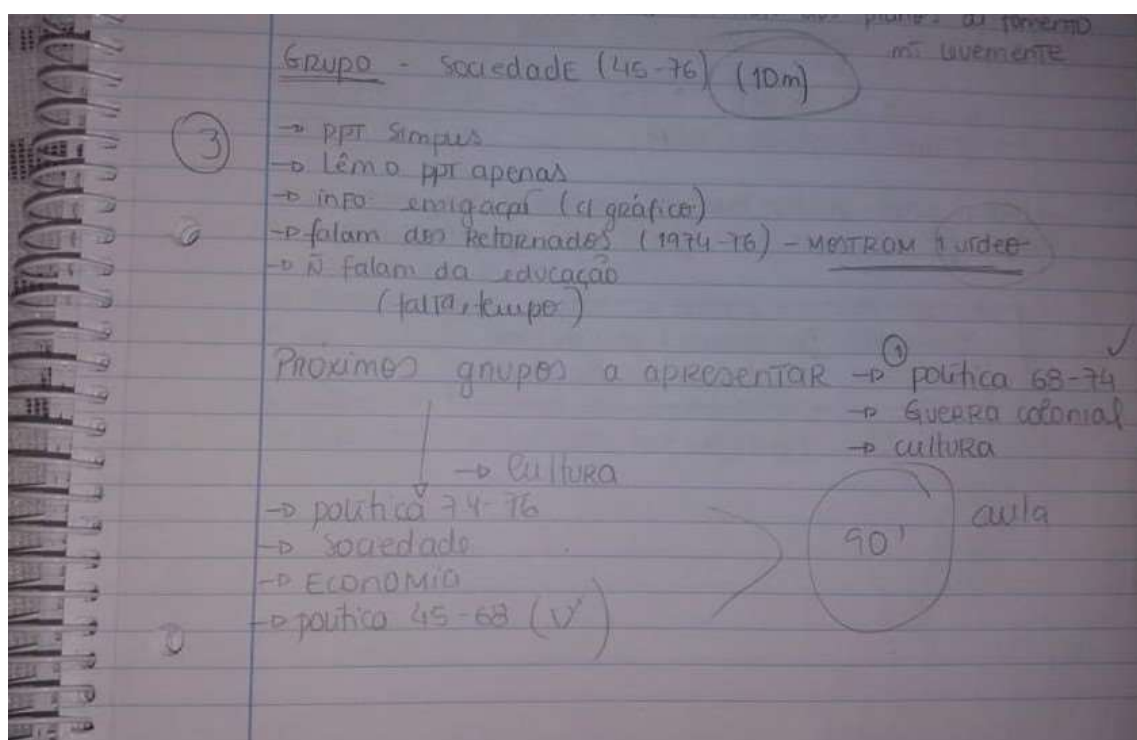 planos de fomento
mt levemente
GRUPO - Sociedade (45-76) (10m)
3
→ PPT Simples
→ Lêm o ppt apenas
→ info emigação (c/ gráfico)
→ falam dos Retornados (1974-76) - MOSTRAM 1 vídeo
→ Ñ falam da educação
(falta, tempo)
Próximos grupos a apresentar → ① política 68-74 ✓
→ Guerra colonial
→ cultura
→ Cultura
→ política 74-76
→ Sociedade
→ Economia
→ política 45-68 (V)
90'
aula